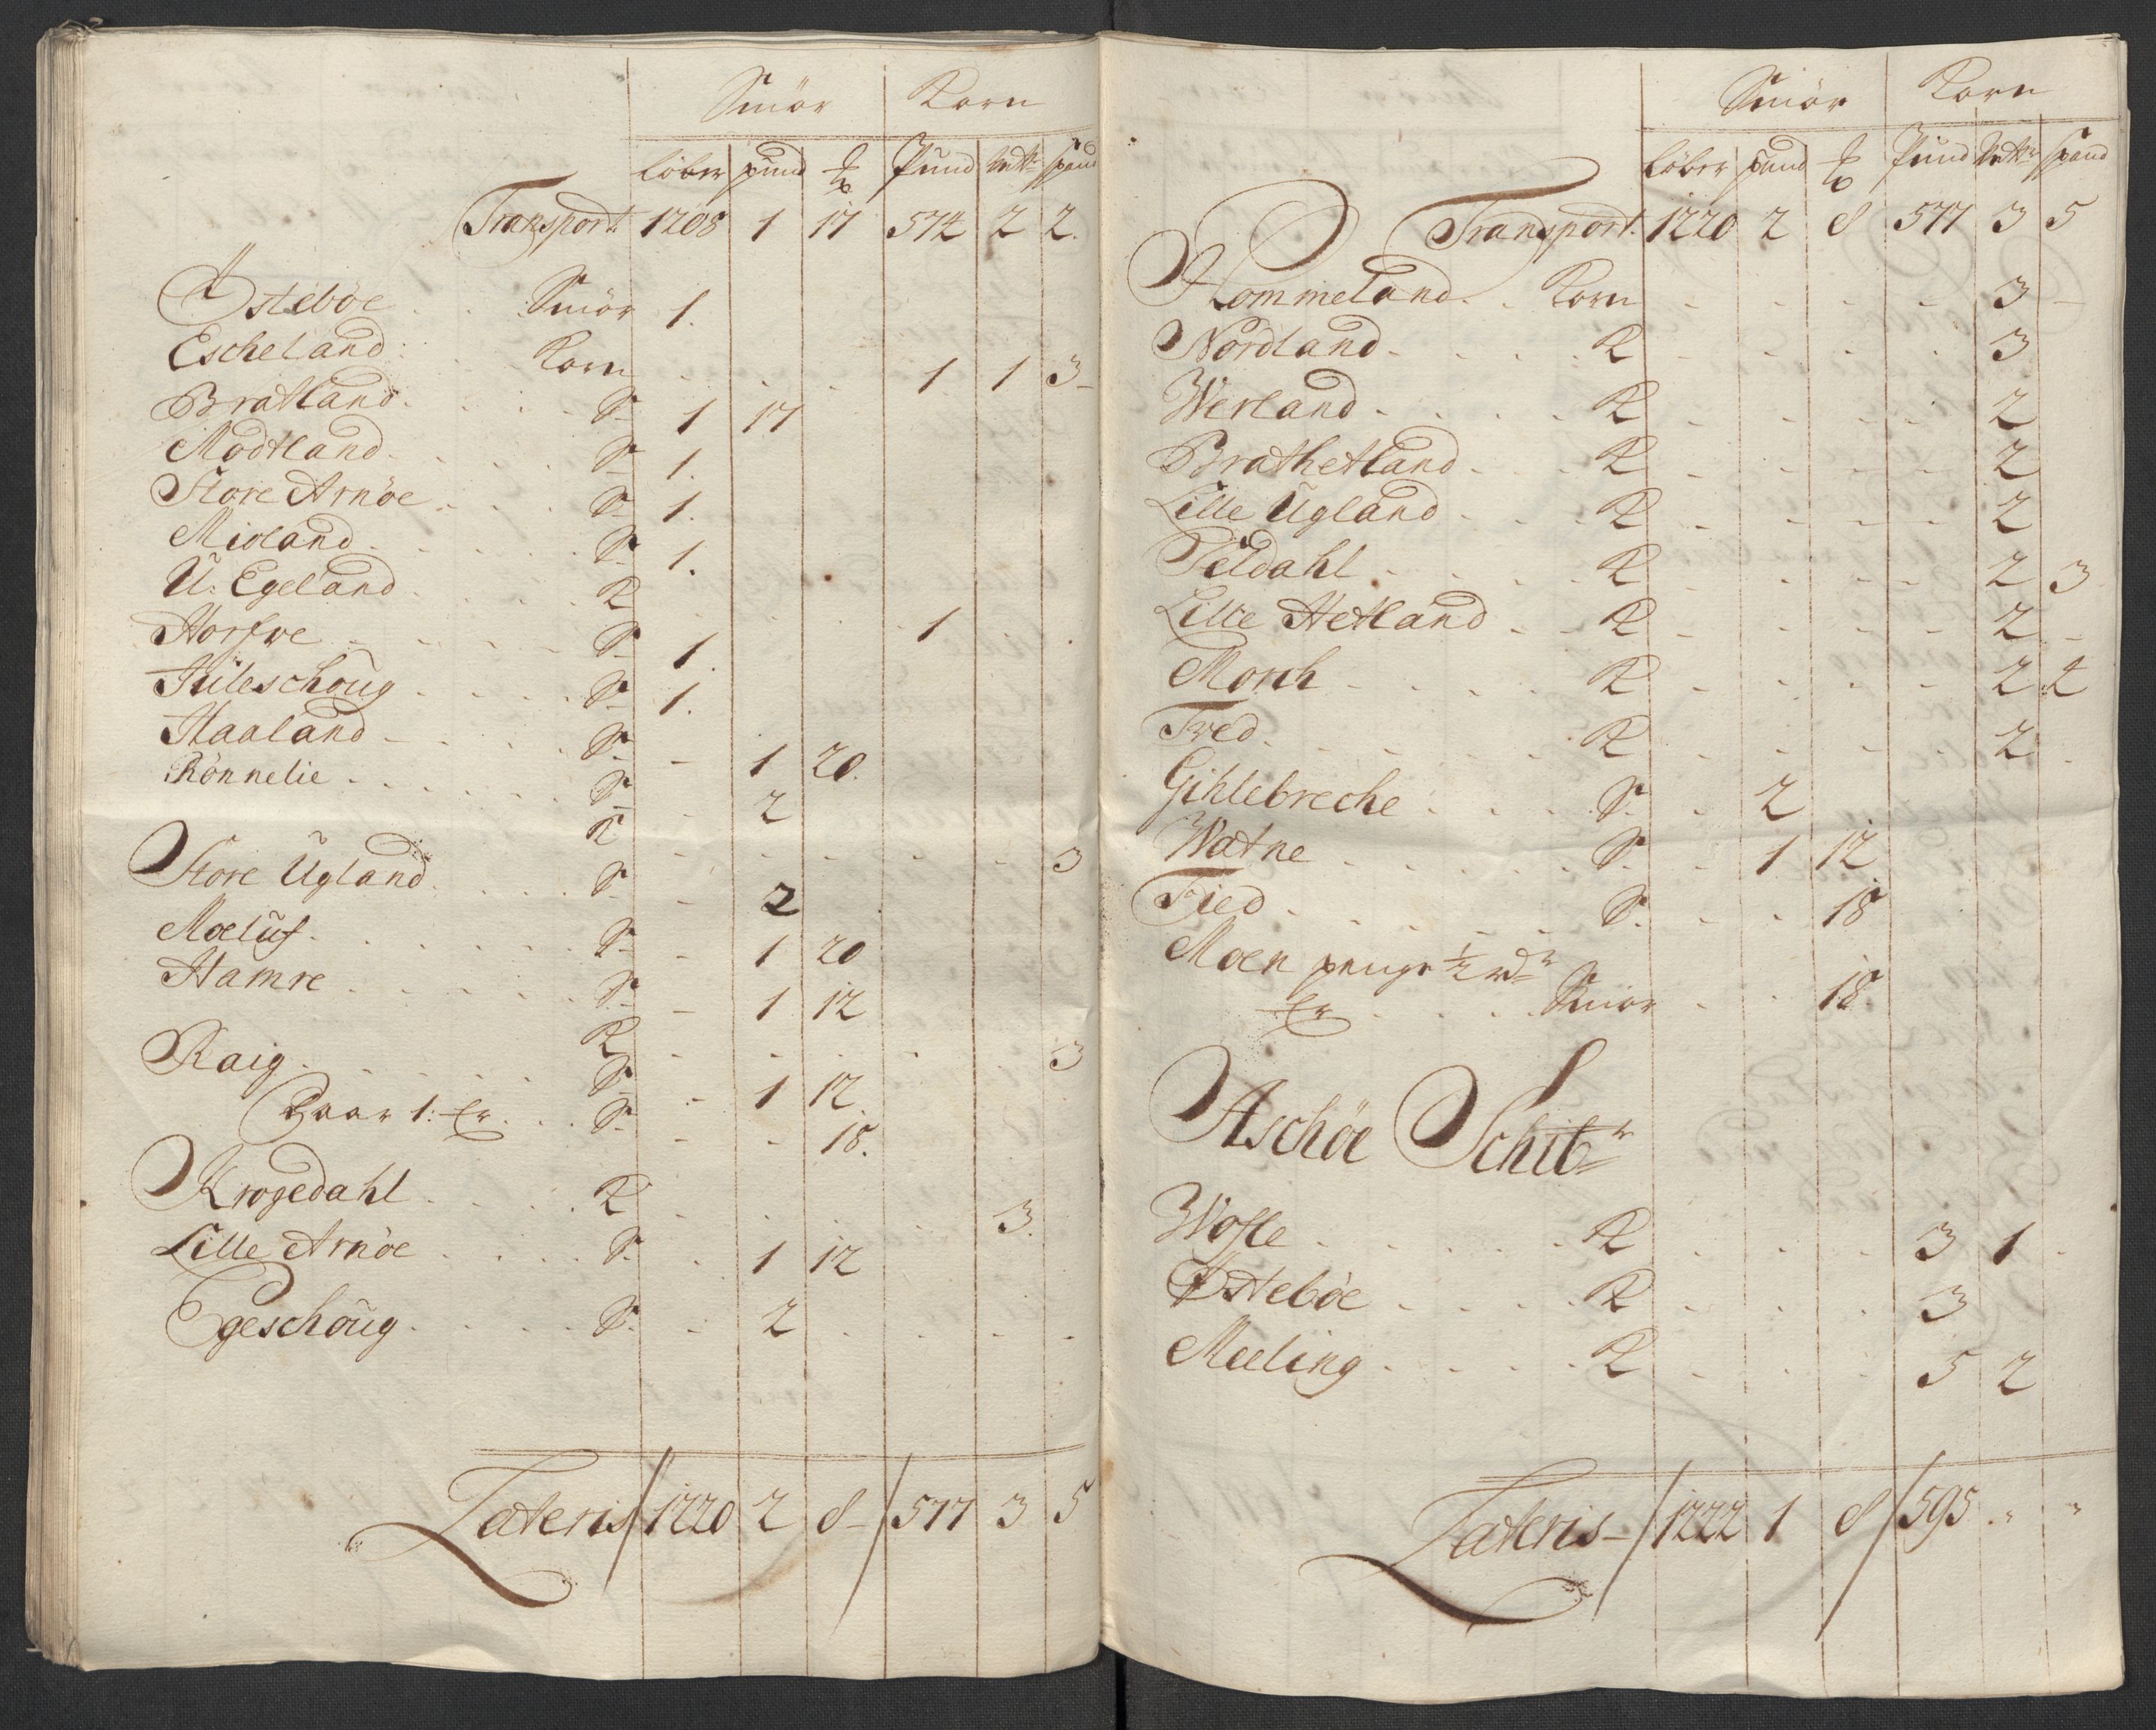 Smör Korn
Löber pund ℔ Pund spand
Transport 1208 1 17 574 2 2.
Østeböe . . Smör 1.
Escheland . . Korn . . . 1 1 3
Bratland . . . . S. 1 17
Modtland . . . . S. 1.
Store Arnöe . . . S. 1.
Midland . . . . S. 1.
U: Egeland . . . . K . . . 1 . .
Horfve . . . . S. 1.
Juleschoug . . . . S. 1.
Haaland . . . . S. - 1 20.
Rönnelie . . . . S. - 2
K . . . . . 3
Store Ugland . . . . S. - 2
Moeluf . . . . S. - 1 20
Hamre . . . . S. - 1 12
K . . . . . 3
Raig . . . . S. - 1 12
1: . . S. - - 18.
Krogedahl . . . . K . . . . 3.
Lille Arnöe . . . . S. . 1 12
Egeschoug . . . . S. . 2 . . . .
Lateris 1220 2 8 577 3 5
Smör Korn
Löber pund ℔ Pund spand
Transport 1220 2 8 577 3 5
Hommeland . . Korn . . . . 3 -
Nordland . . . . K . . . . 3
Werland . . . . K . . . . 2
Brathetland . . . K . . . . 2
Lille Ugland . . . K . . . . 2
Teldahl . . . . K . . . . 2 3
Lille Hetland . . K . . . . 2 -
Monh . . . . K . . . . 2 2
Tved . . . . K . . . . 2 .
Gihlebreche . . . . S. . 2
Watne . . . . S. . 1 12
Tied . . . . S. . . 18
Moen penge ½ rdr
. . . Smör . . 18
Aschöe Schibr
Wofle . . . . K . . . 3 1 .
Østeböe . . . . K . . . 3
Meeling . . . . K . . . 5 2
Lateris 1222 1 8 595 " "